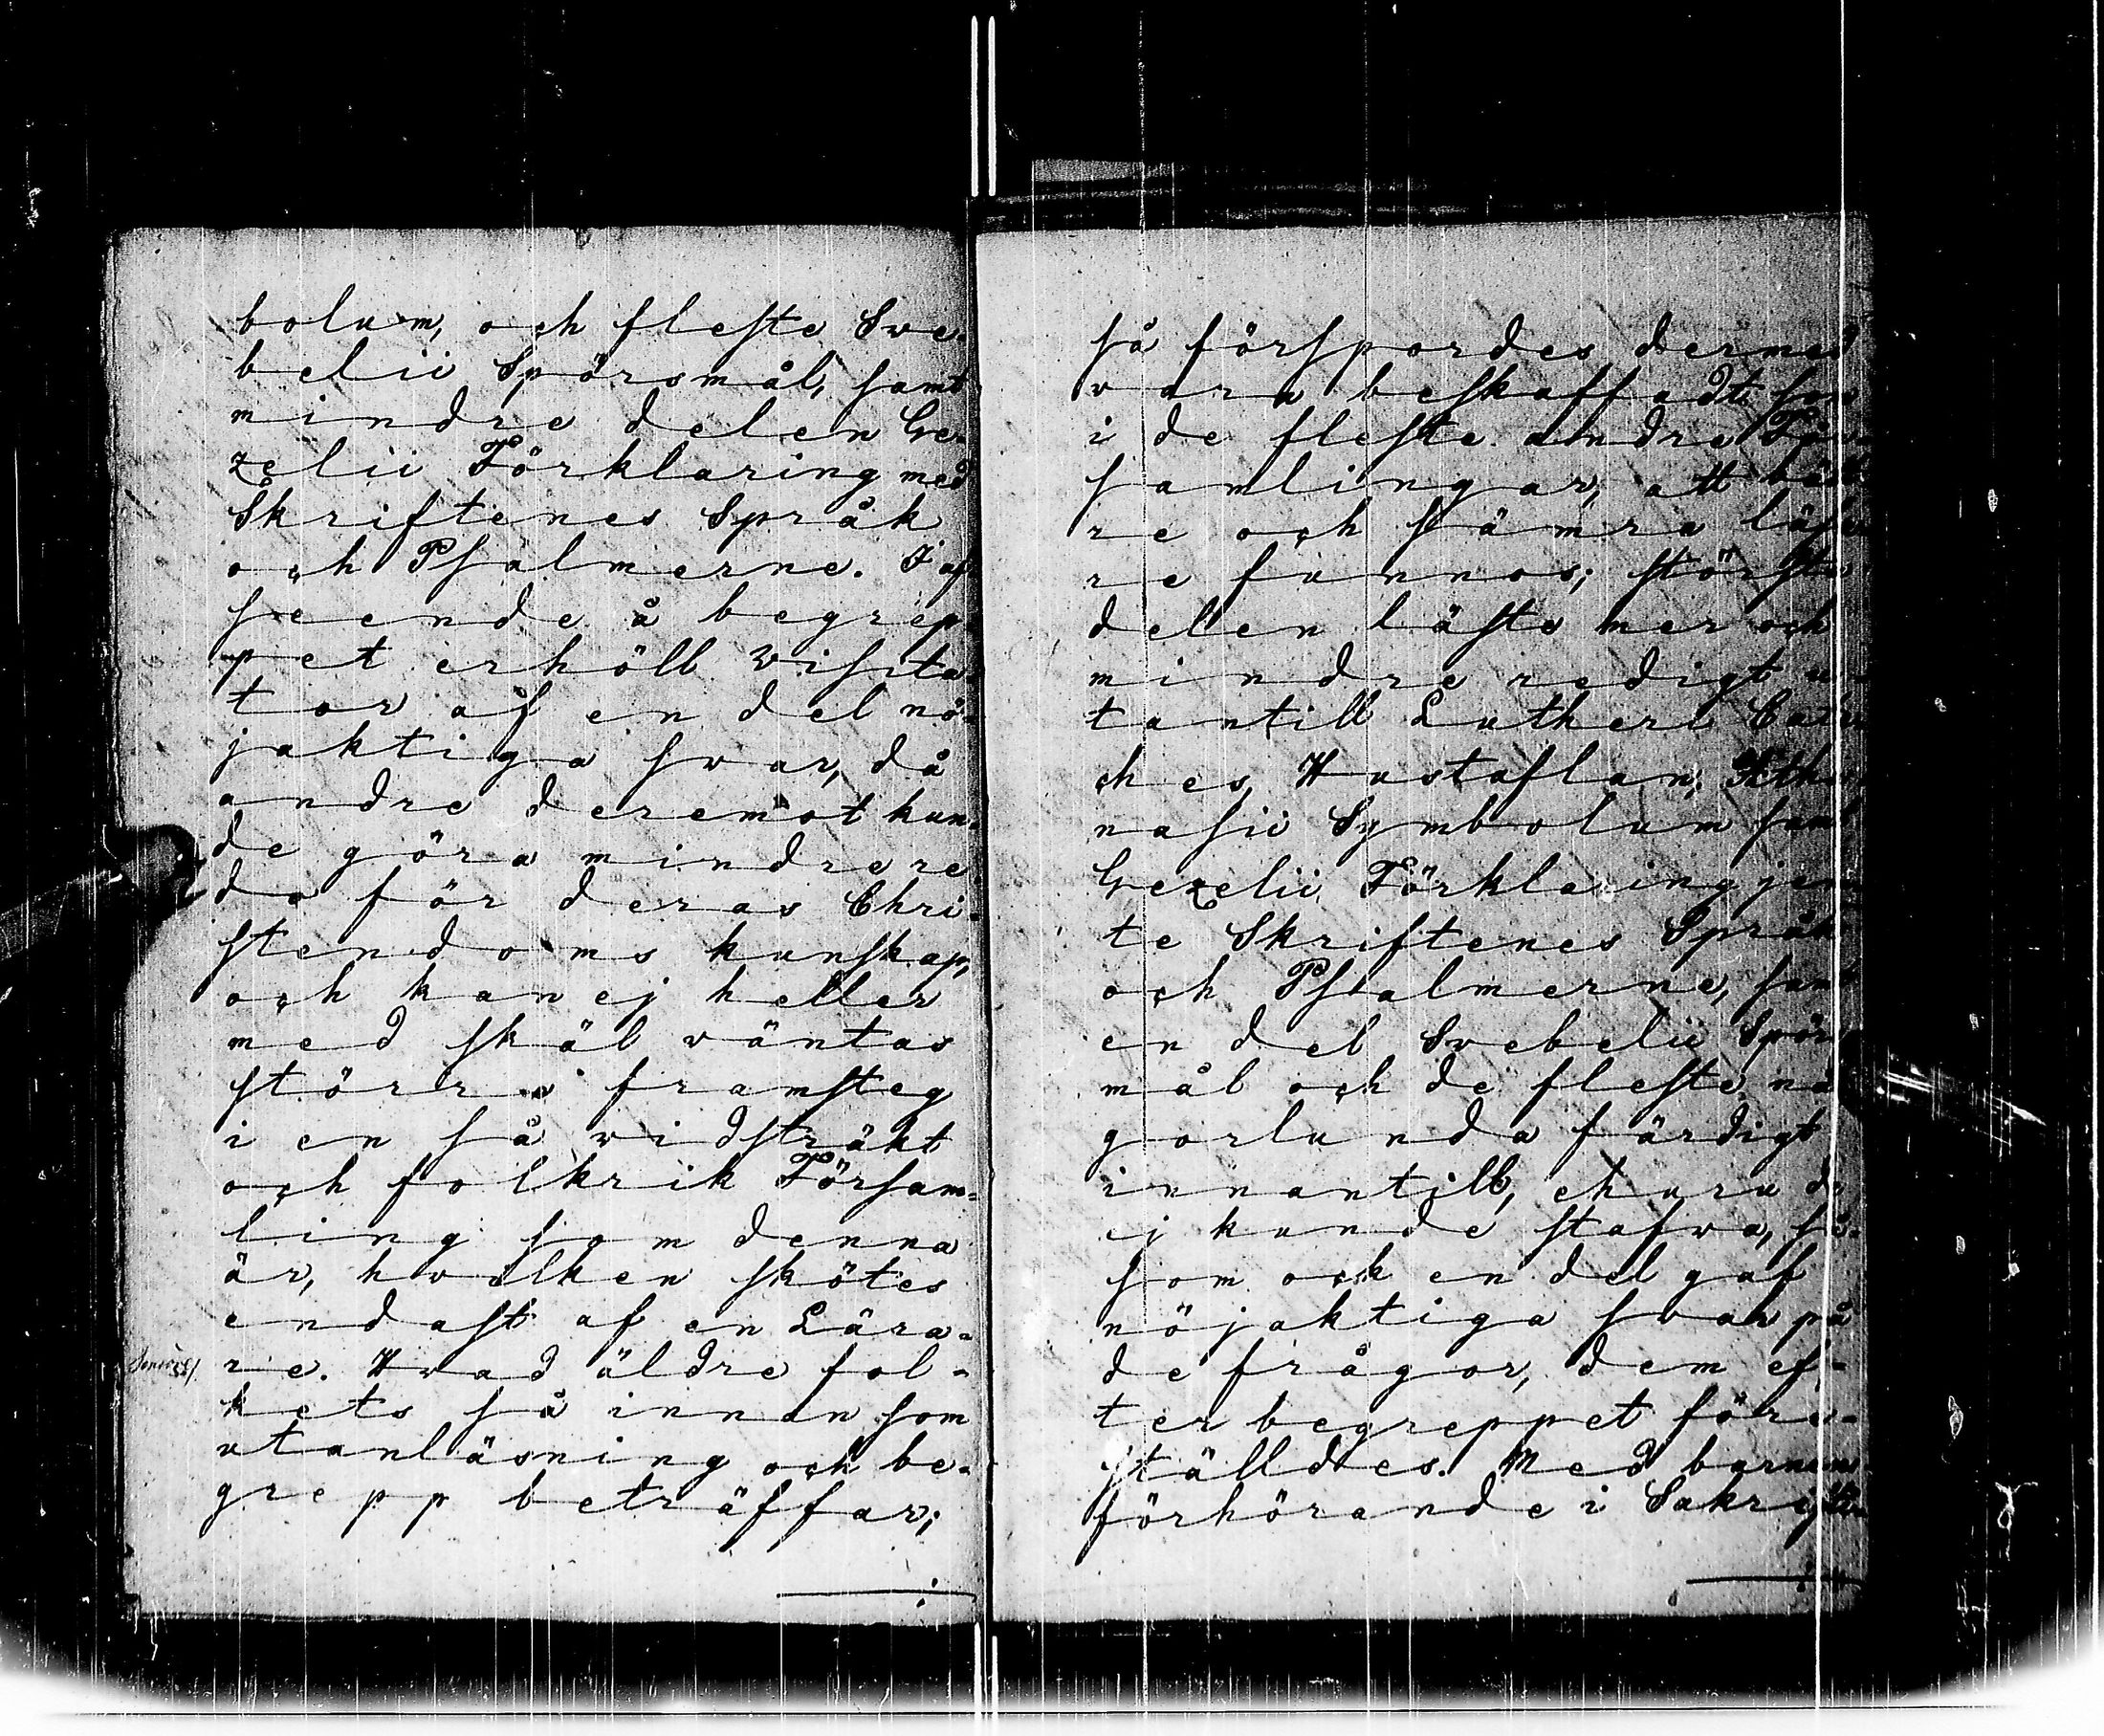 bolum, och fleste Swe-
belii Spörsmål, samt
mindre delen Ge-
zelii Förklaring med
Skriftenes Språk
och Psalmerne. I af
seende å begrep-
pet erhöll Visita-
tor af en del nö-
jaktiga svar, då
andre deremot kun-
de göra mindre re
da för deras Chri-
stendoms kunskap,
och kan ej heller
med skäl väntas
större framsteg
i en så vidsträkt
och folkrik Försam-
ling som denna
är, hvilken skötes
endast af en Lära-
re. Hvad äldre fol-
kets så innan som
utanläsning och be-
grepp beträffar;
så förspordes dermed
vara beskaffadt som
i de fleste andre För-
samlingar, att bätt-
re och sämre läsa-
re funnos; största
delen läste mer och
mindre redigt u-
tantill Lutheri Cate-
ches, Hustaflan, Atha-
nasii Symbolum samt
Gezelii Förklaring jem-
te Skriftenes Språk
och Psalmerne, samt
en del Svebelii Spörs-
mål och de fleste nå-
gorlunda färdigt
innantill, ehuru de
ej kunde stafva, så-
som ock en del gaf
nöjaktiga svar på
de frågor, dem ef-
ter begreppet före-
ställdes. Med barnens
förhörande i Sakristian